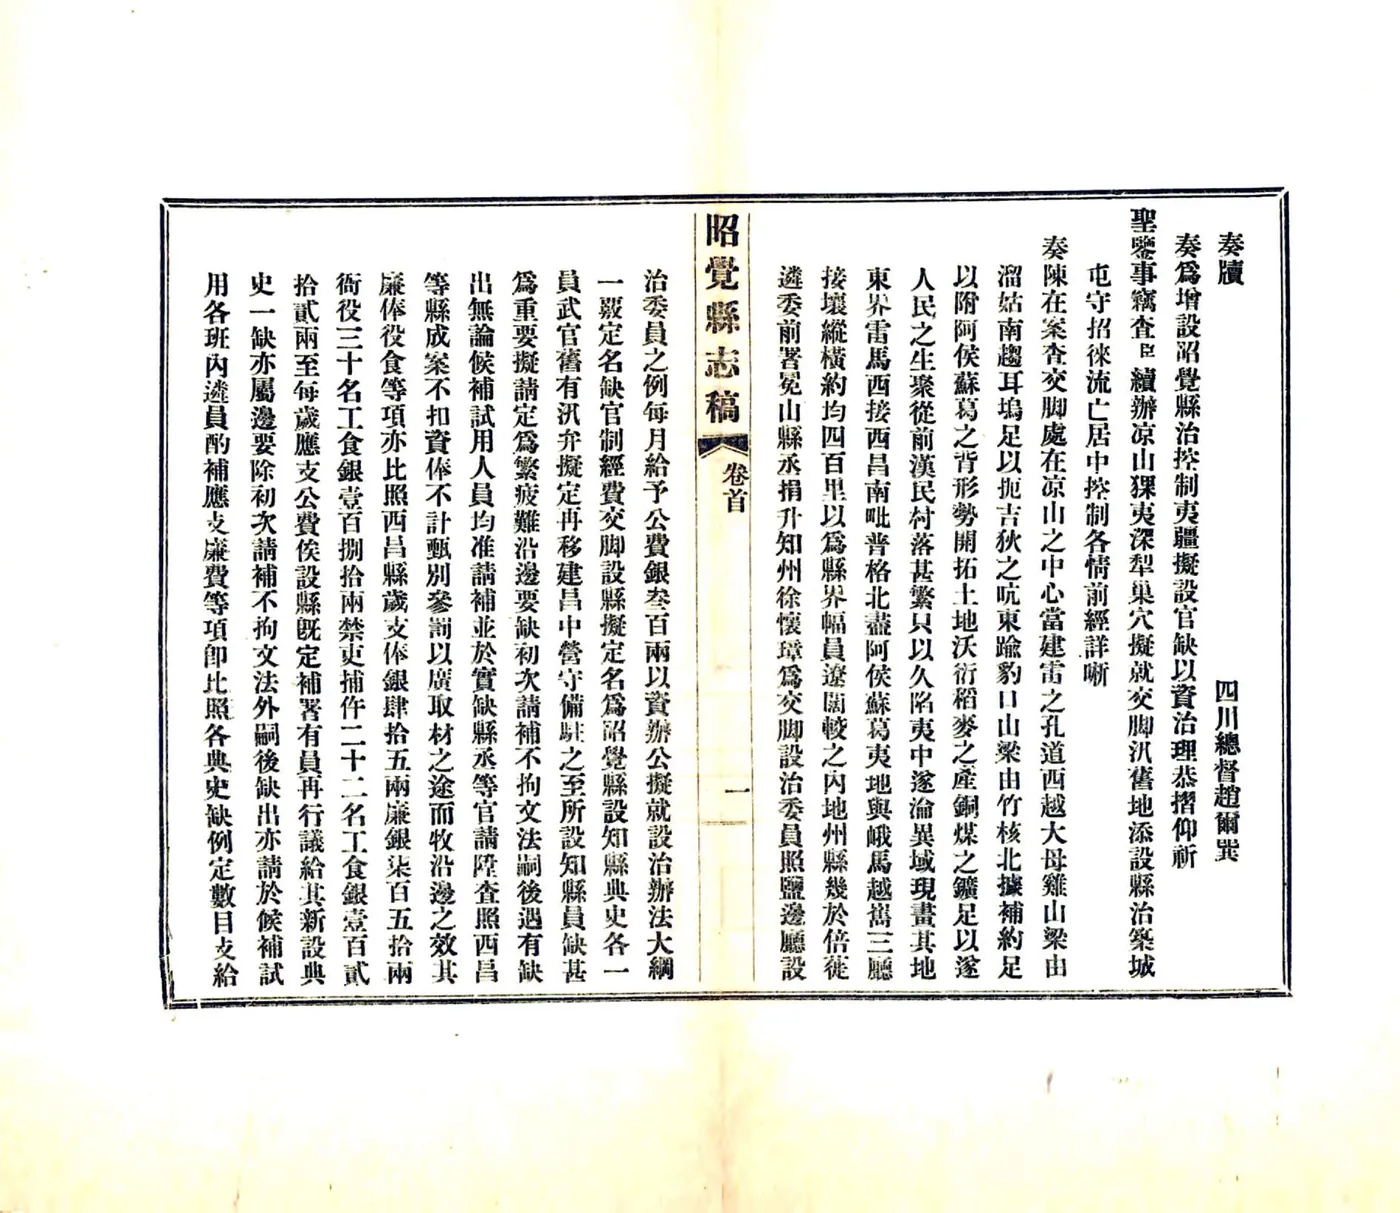 奏牘
四川總督趙爾巽
奏爲增設昭覺縣治控制夷疆擬設官缺以資治理恭摺仰祈
聖鑒事竊查臣續辦凉山猓夷深犁巢穴擬就交脚汛舊地添設縣治築城
屯守招徠流亡居中控制各情前經詳晰
奏陳在案查交脚處在凉山之中心當建雷之孔道西越大母雞山梁由
溜姑南趨耳塢足以扼吉狄之吭東踰豹口山梁由竹核北據補約足
以附阿侯蘇葛之背形勢開拓土地沃衍稻麥之產銅煤之鑛足以遂
人民之生聚從前漢民村落甚繁只以久陷夷中遂淪異域現畫其地
東界雷馬西接西昌南毗普格北盡阿侯蘇葛夷地與峨馬越嶲三廳
接壤縱橫約均四百里以爲縣界幅員遼闊較之內地州縣幾於倍蓰
遴委前署冕山縣丞捐升知州徐懷璋爲交脚設治委員照鹽邊廳設
昭覺縣志稿
卷首
一
治委員之例每月給予公費銀叁百兩以資辦公擬就設治辦法大綱
一覈定名缺官制經費交脚設縣擬定名爲昭覺縣設知縣典史各一
員武官舊有汛弁擬定再移建昌中營守備駐之至所設知縣員缺甚
爲重要擬請定爲繁疲難沿邊要缺初次請補不拘文法嗣後遇有缺
出無論候補試用人員均准請補並於實缺縣丞等官請陞查照西昌
等縣成案不扣資俸不計甄別參罰以廣取材之途而牧沿邊之效其
廉俸役食等項亦比照西昌縣歲支俸銀肆拾五兩廉銀柒百五拾兩
衙役三十名工食銀壹百捌拾兩禁吏捕仵二十二名工食銀壹百貳
拾貳兩至每歲應支公費俟設縣旣定補署有員再行議給其新設典
史一缺亦屬邊要除初次請補不拘文法外嗣後缺出亦請於候補試
用各班內遴員酌補應支廉費等項卽比照各典史缺例定數目支給